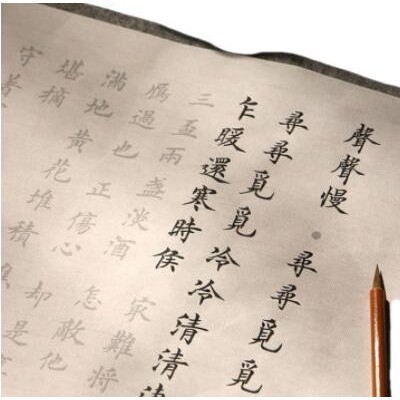 聲聲慢·尋尋覓覓
尋尋覓覓冷冷清清
乍暖還寒時候 冣難將
三盃兩盞淡酒 怎敵他
鴈過也 正傷心 却是
滿地黃花堆積
堪摘
守著